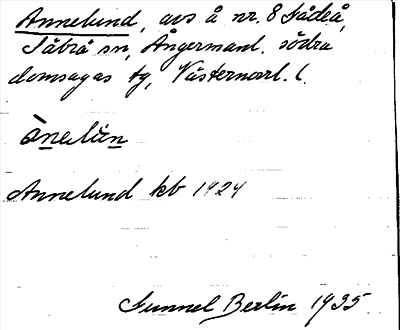 Annelund, avs å nr. 8 Fådeå,
Säbrå sn, Ångermanl. södra
domsagas tg, Västernorrl. l.
ànelǜn
Annelund kb 1924
Gunnel Berlin 1935